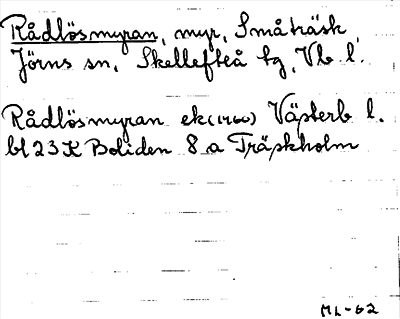 Rådlösmyran, myr, Småträsk
Jörns sn, Skellefteå tg, Vb l.
Rådlösmyran ek (1960) Västerb l.
bl 23 K Boliden 8 a Träskholm
ML-62